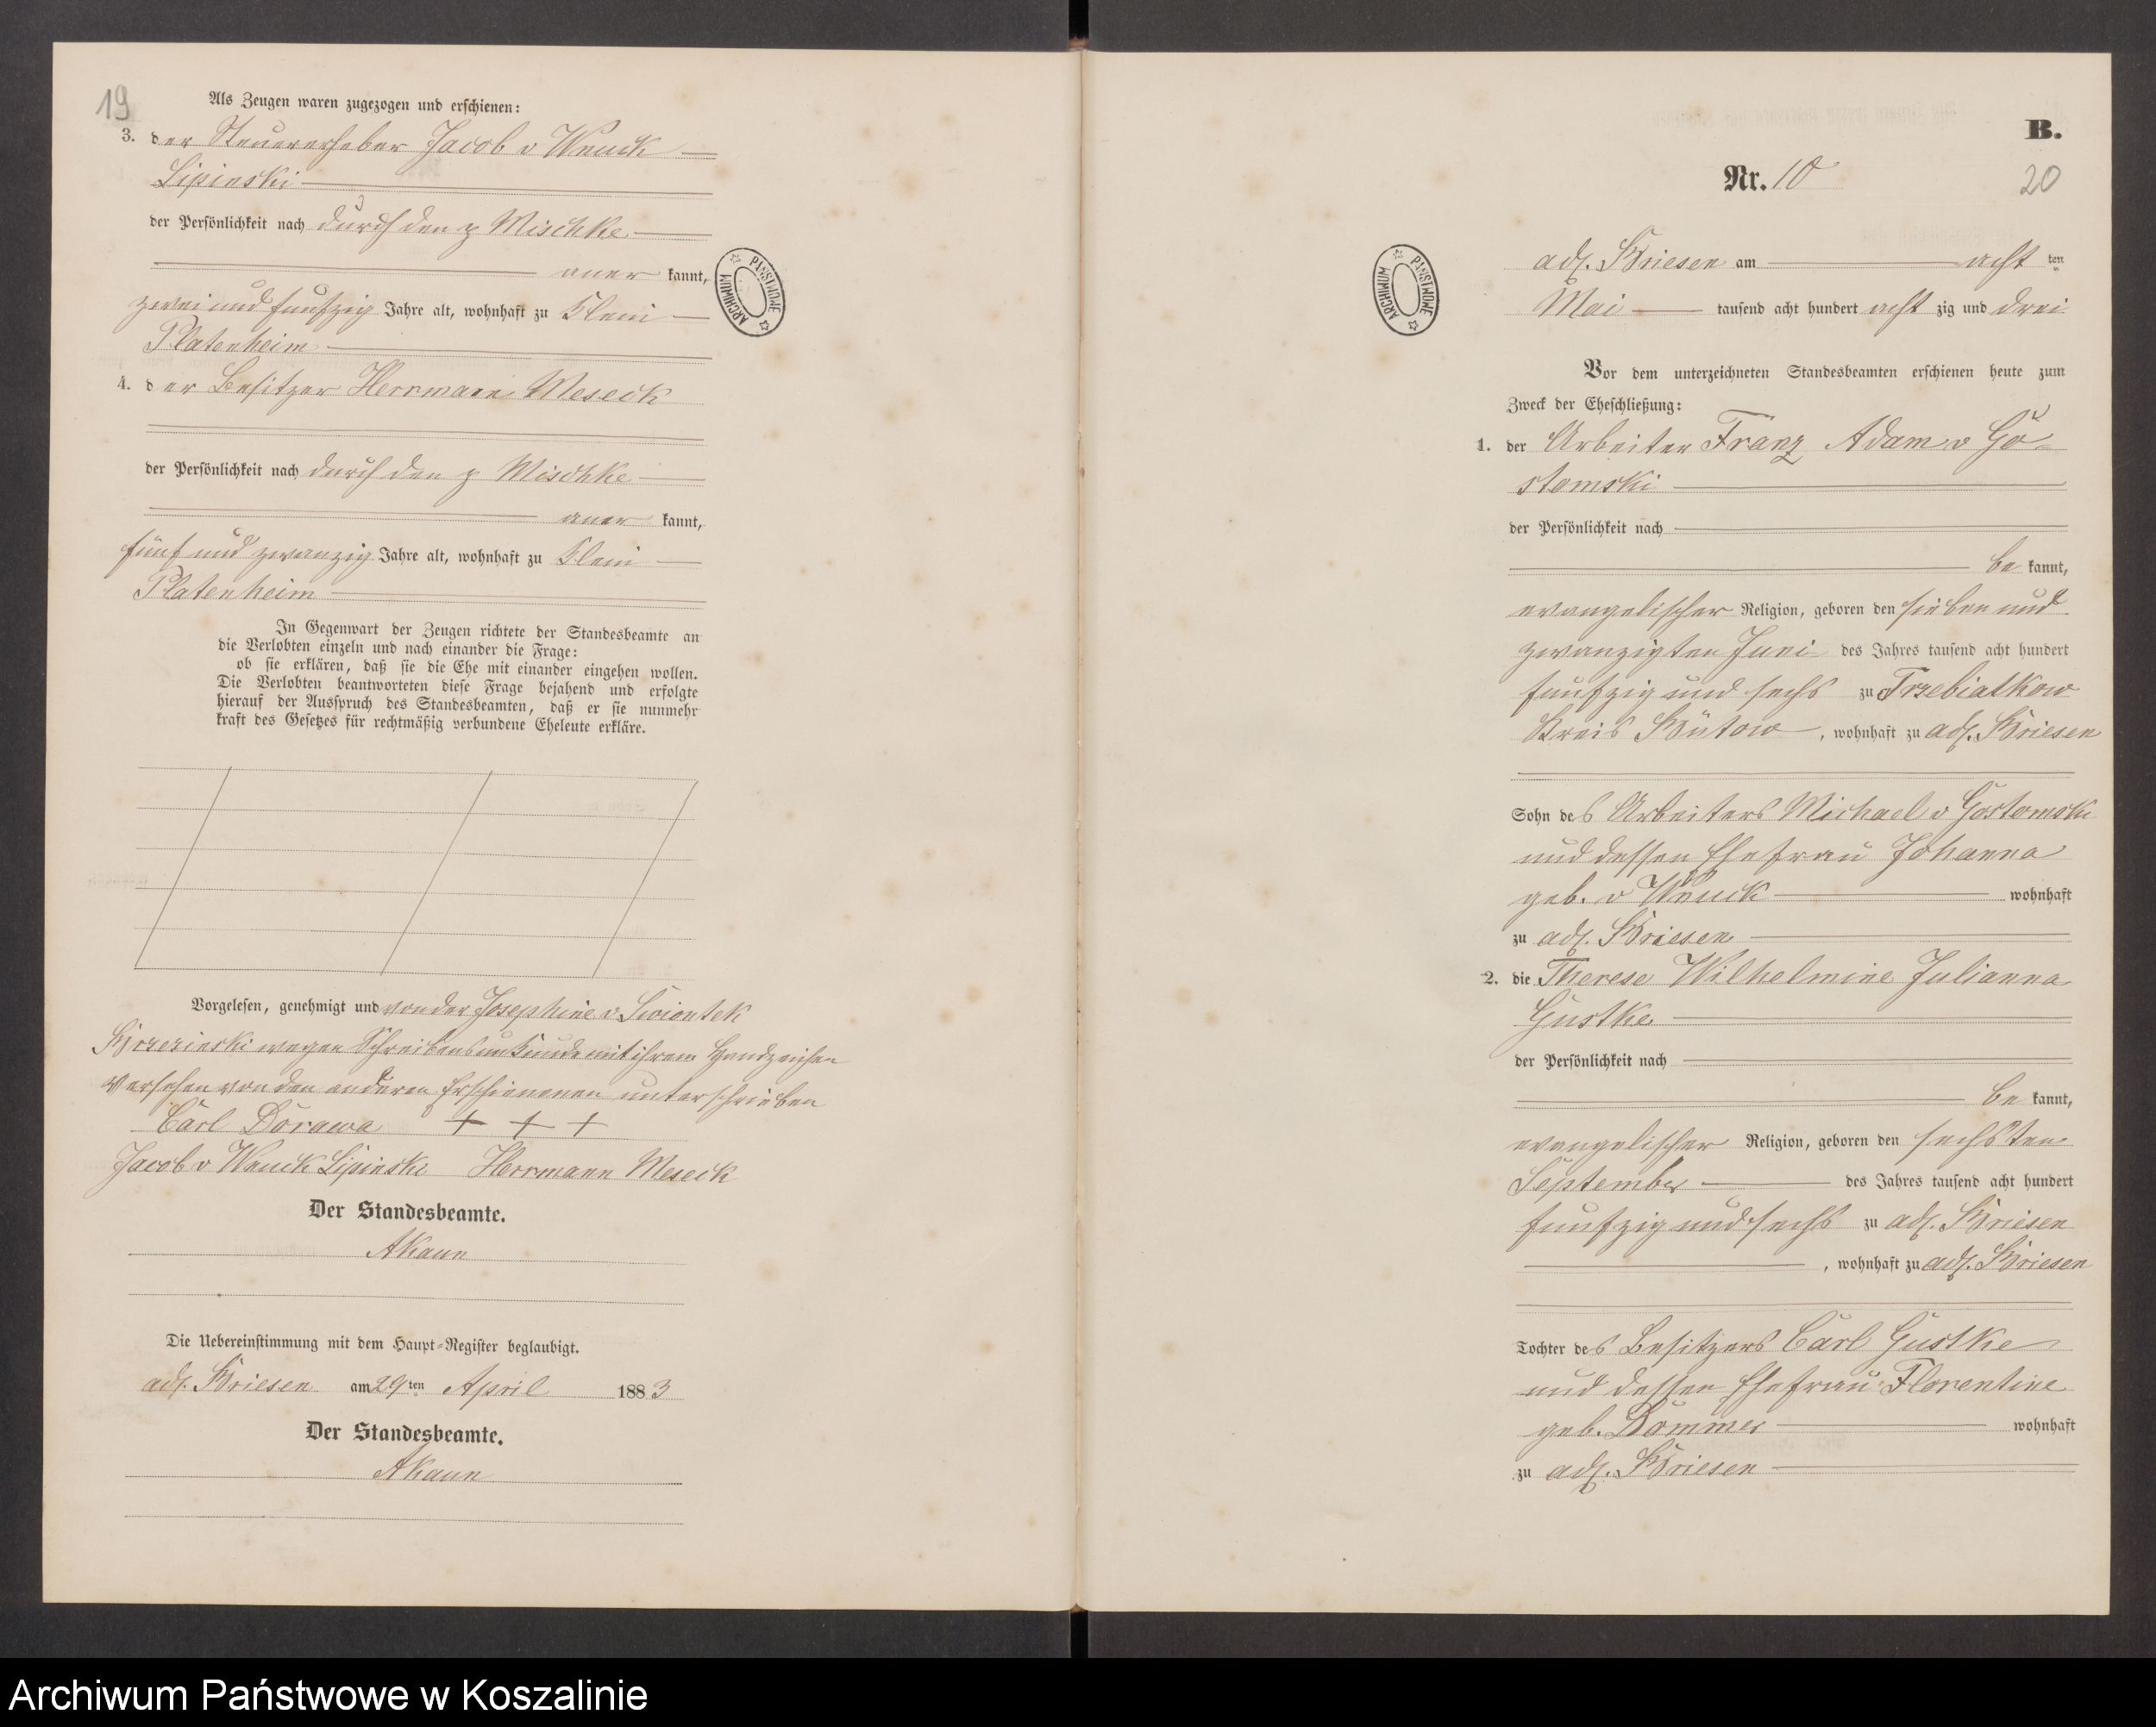 19
Als Zeugen waren zugezogen und erschienen:
3. der Steuererheber Jacob v Wnuck
Lipinski
der Persönlichkeit nach durch den p Mischke
aner kannt,
zwei und funfzig Jahre alt, wohnhaft zu Klein
Platenheim
4. der Besitzer Herrmann Meseck
der Persönlichkeit nach durch den p Mischke
aner kannt,
fünf und zwanzig Jahre alt, wohnhaft zu Klein
Platenheim
In Gegenwart der Zeugen richtete der Standesbeamte an
die Verlobten einzeln und nach einander die Frage:
ob sie erklären, daß sie die Ehe mit einander eingehen wollen.
Die Verlobten beantworteten diese Frage bejahend und erfolgte
hierauf der Ausspruch des Standesbeamten, daß er sie nunmehr
kraft des Gesetzes für rechtmäßig verbundene Eheleute erkläre.
Vorgelesen, genehmigt und von der Josephine v. Swiontek
Brzezinski wegen Schreibensunkunde mit ihrem Handzeichen
versehen von den anderen Erschienenen unterschrieben
Carl Dorawa + + +
Jacob v Wnuck Lipinski Herrmann Meseck
Der Standesbeamte.
AKaun
Die Uebereinstimmung mit dem Haupt-Register beglaubigt.
adl. Briesen am 29ten April 1883
Der Standesbeamte.
AKaun
ARCHIWUM PAŃSTWOWE
B.
Nr. 10
20
adl. Briesen am acht ten
Mai tausend acht hundert acht zig und drei
ARCHIWUM PAŃSTWOWE
Vor dem unterzeichneten Standesbeamten erschienen heute zum
Zweck der Eheschließung:
1. der Arbeiter Franz Adam v Go-
stomski
der Persönlichkeit nach
be kannt,
evangelischer Religion, geboren den sieben und
zwanzigten Juni des Jahres tausend acht hundert
funfzig und sechs zu Trzebiatkow
Kreis Bütow, wohnhaft zu adl. Briesen
Sohn des Arbeiters Michael v Gostomski
und dessen Ehefrau Johanna
geb. v Wnuck wohnhaft
zu adl. Briesen
2. die Therese Wilhelmine Julianna
Gustke
der Persönlichkeit nach
be kannt,
evangelischer Religion, geboren den sechsten
September des Jahres tausend acht hundert
funfzig und sechs zu adl. Briesen
, wohnhaft zu adl. Briesen
Tochter des Besitzers Carl Gustke
und dessen Ehefrau Florentine
geb. Dommer wohnhaft
zu adl. Briesen
Archiwum Państwowe w Koszalinie